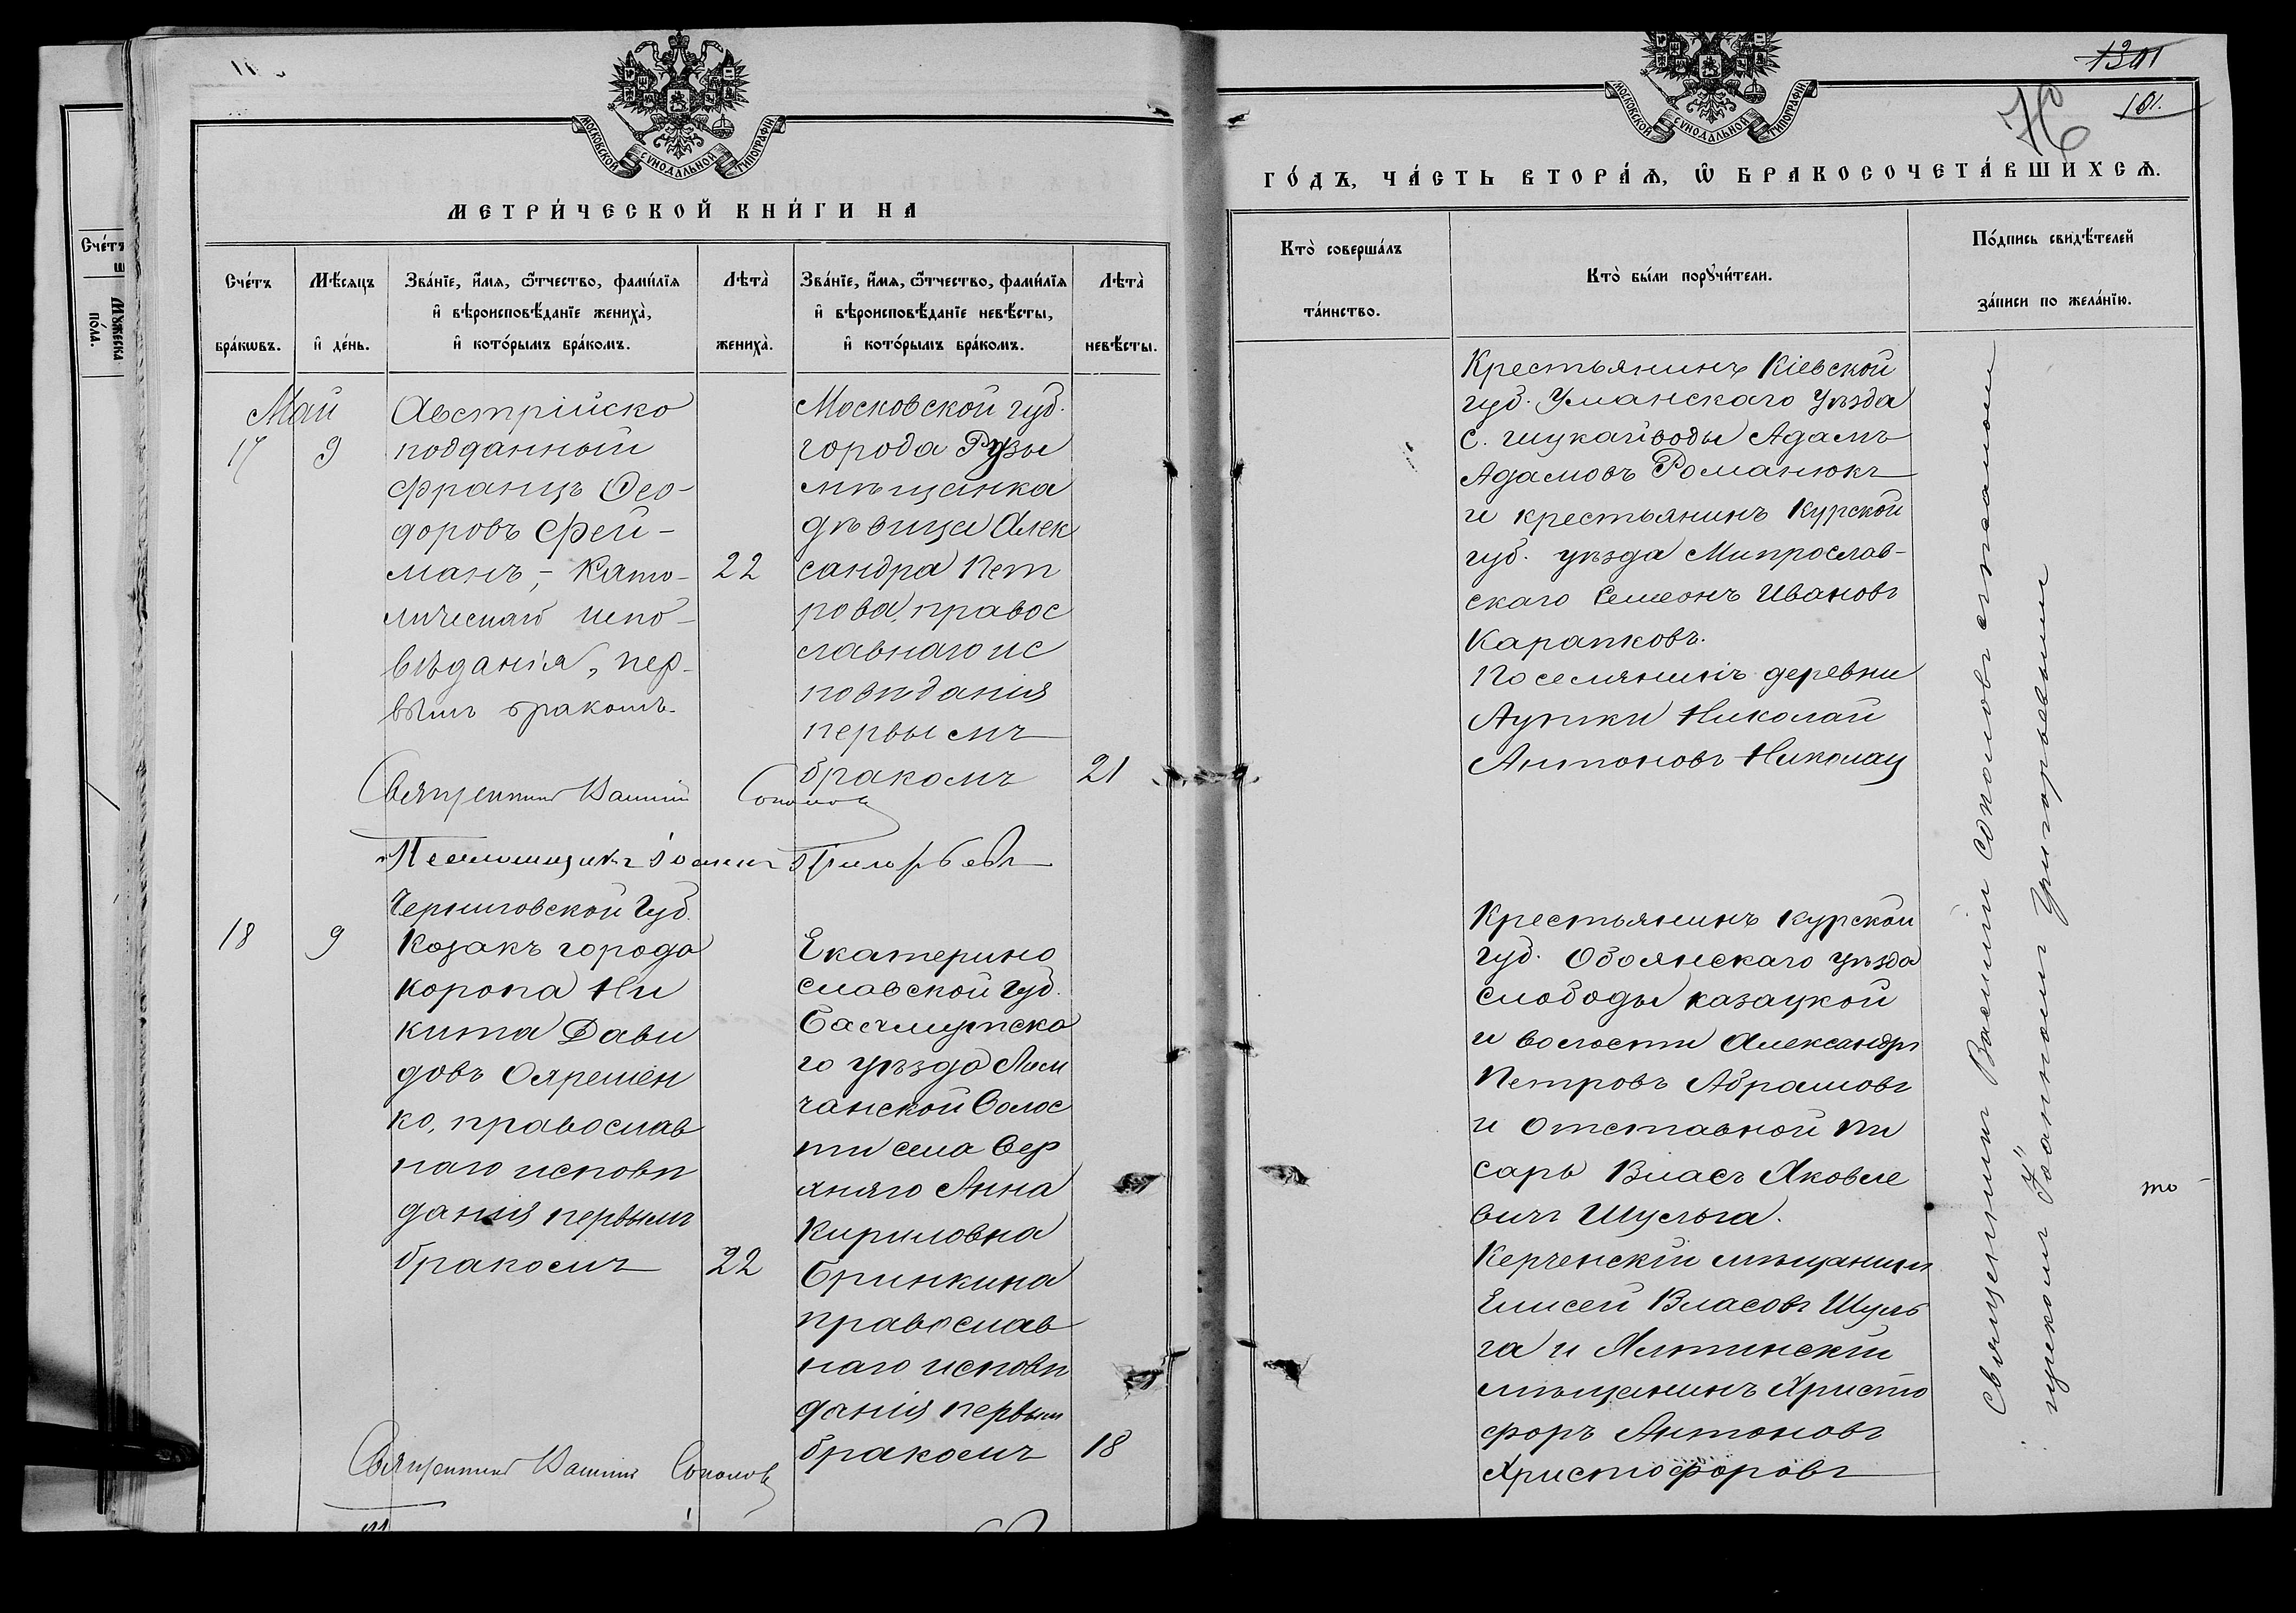 МОСКОВСКОЙ СѴНОДАЛЬНОЙ ТИПОГРАФІИ
МЕТРИ́ЧЕСКОЙ КНИ́ГИ НА
Сче́тъ бра́кѡвъ.
Мѣ́сяцъ и҆ де́нь.
Зва́нїе, и҆́мя, ѻ҆́тчество, фами́лїя
и҆ вѣроисповѣ́данїе жениха̀,
и҆ кото́рымъ бра́комъ.
Лѣта̀ жениха̀.
Зва́нїе, и҆́мя, ѻ҆́тчество, фами́лїя
и҆ вѣроисповѣ́данїе невѣ́сты,
и҆ кото́рымъ бра́комъ.
Лѣта̀ невѣ́сты.
Май
17
9
Австрійско
подданный
Францъ Ѳео-
доровъ Фей-
манъ, – Като-
лическаго испо-
вѣданія, пер-
вымъ бракомъ.
22
Московской губ.
города Рузы
мѣщанка
дѣвица Алек
сандра Пет
рова, правос
лавнаго ис
повѣданія
первымъ
бракомъ
21
Священникъ Василій Соколовъ
Псаломщикъ
18
9
Черниговской Губ.
Козакъ города
Коропа Ни
кита Дави
довъ
ко, православ
наго исповѣ
данія первымъ
бракомъ
22
Екатерино
славской Губ.
Бахмутска
го уѣзда Лим
чанской Волос
ти села Вер
хняго Анна
Кириловна
Бринкина
православ
наго исповѣ
данія первым
бракомъ
18
Священникъ Василій Соколовъ
МОСКОВСКОЙ СѴНОДАЛЬНОЙ ТИПОГРАФІИ
1301
101.
ГО́ДЪ, ЧА́СТЬ ВТОРА́Ѧ, Ѡ҆ БРАКОСОЧЕТА́ВШИХСѦ.
Кто̀ соверша́лъ
та́инство.
Кто̀ бы́ли порꙋчи́тели.
По́дпись свидѣ́телей
за́писи по жела́нїю.
Крестьянинъ Кіевской
губ. Уманскаго Уѣзда
с. Шукайводы Адамъ
Адамовъ Романюкъ
и крестьянинъ Курской
губ. уѣзда Митрослав-
скаго Семеонъ Ивановъ
Карапковъ.
Поселянинъ деревни
Аутки Николай
Антоновъ Николац
Крестьянинъ Курской
губ. Обоянскаго уѣзда
слободы казацкой
и волости Александръ
Петровъ Абрамовъ
и отставной пи
сарь Власъ Яковле
вичъ Шульга.
Керченскій мѣщанинъ
Елисей Власовъ Шуль
га и Ялтинскій
мѣщанинъ Христо
форъ Антоновъ
Христофоровъ
Священникъ Василій Соколовъ съ псаломщ
икомъ Іоанномъ Григорьевымъ
то